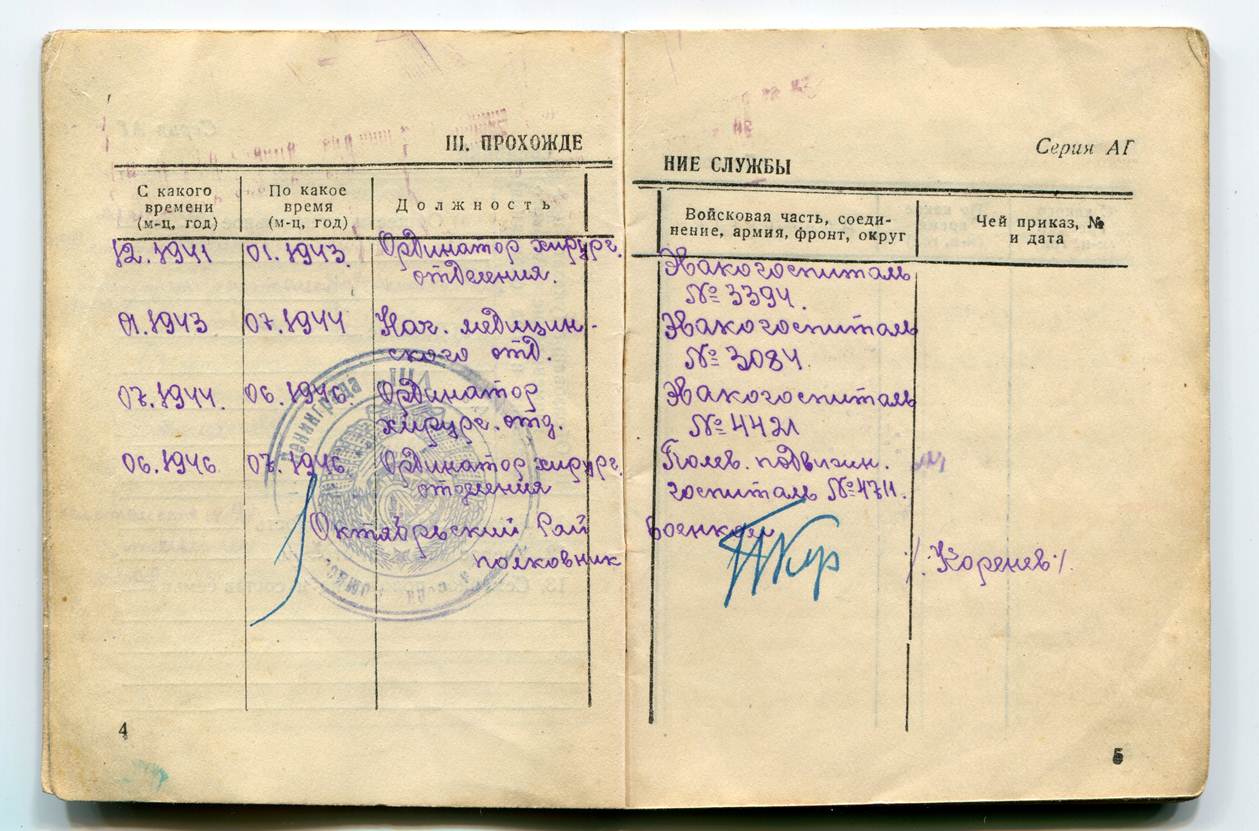 III. ПРОХОЖДЕ
НИЕ СЛУЖБЫ
Серия АГ
С какого
времени
(м-ц, год)
По какое
время
(м-ц, год)
Должность
Войсковая часть, соеди-
нение, армия, фронт, округ
Чей приказ, №
и дата
12.1941 01.1943. Ординатор хирург. Эвакогоспиталь
отделения. № 3394.
01.1943 07.1944 Нач. медицин- Эвакогоспиталь
ского отд. № 3084.
07.1944. 06.1946. Ординатор Эвакогоспиталь
хирург. отд. № 4421
06.1946 07.1946. Ординатор хирург. Полев. подвижн.
отделения госпиталь № 4711.
Октябрьский Рай военком
полковник /Коренев/.
4
5